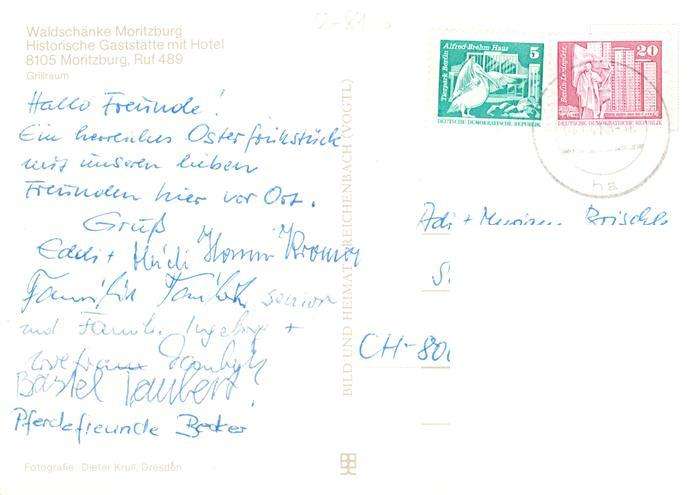 Waldschänke Moritzburg
Historische Gaststätte mit Hotel
8105 Moritzburg, Ruf 489
Grillraum
Hallo Freunde!
Ein herrliches Osterfrühstück
mit unseren lieben
Freunden hier vor Ort.
Gruß
Eddi +
Familie senior
und Familie Ingeborg +
Bastel Taubert.
Pferdefreunde Becker
Fotografie: Dieter Krull, Dresden
BILD UND HEIMAT REICHENBACH (VOGTL)
Tierpark Berlin
Alfred-Brehm-Haus
5
DEUTSCHE DEMOKRATISCHE REPUBLIK
Berlin-Leninplatz
20
DEUTSCHE DEMOKRATISCHE REPUBLIK
ha
Adi +
CH-80